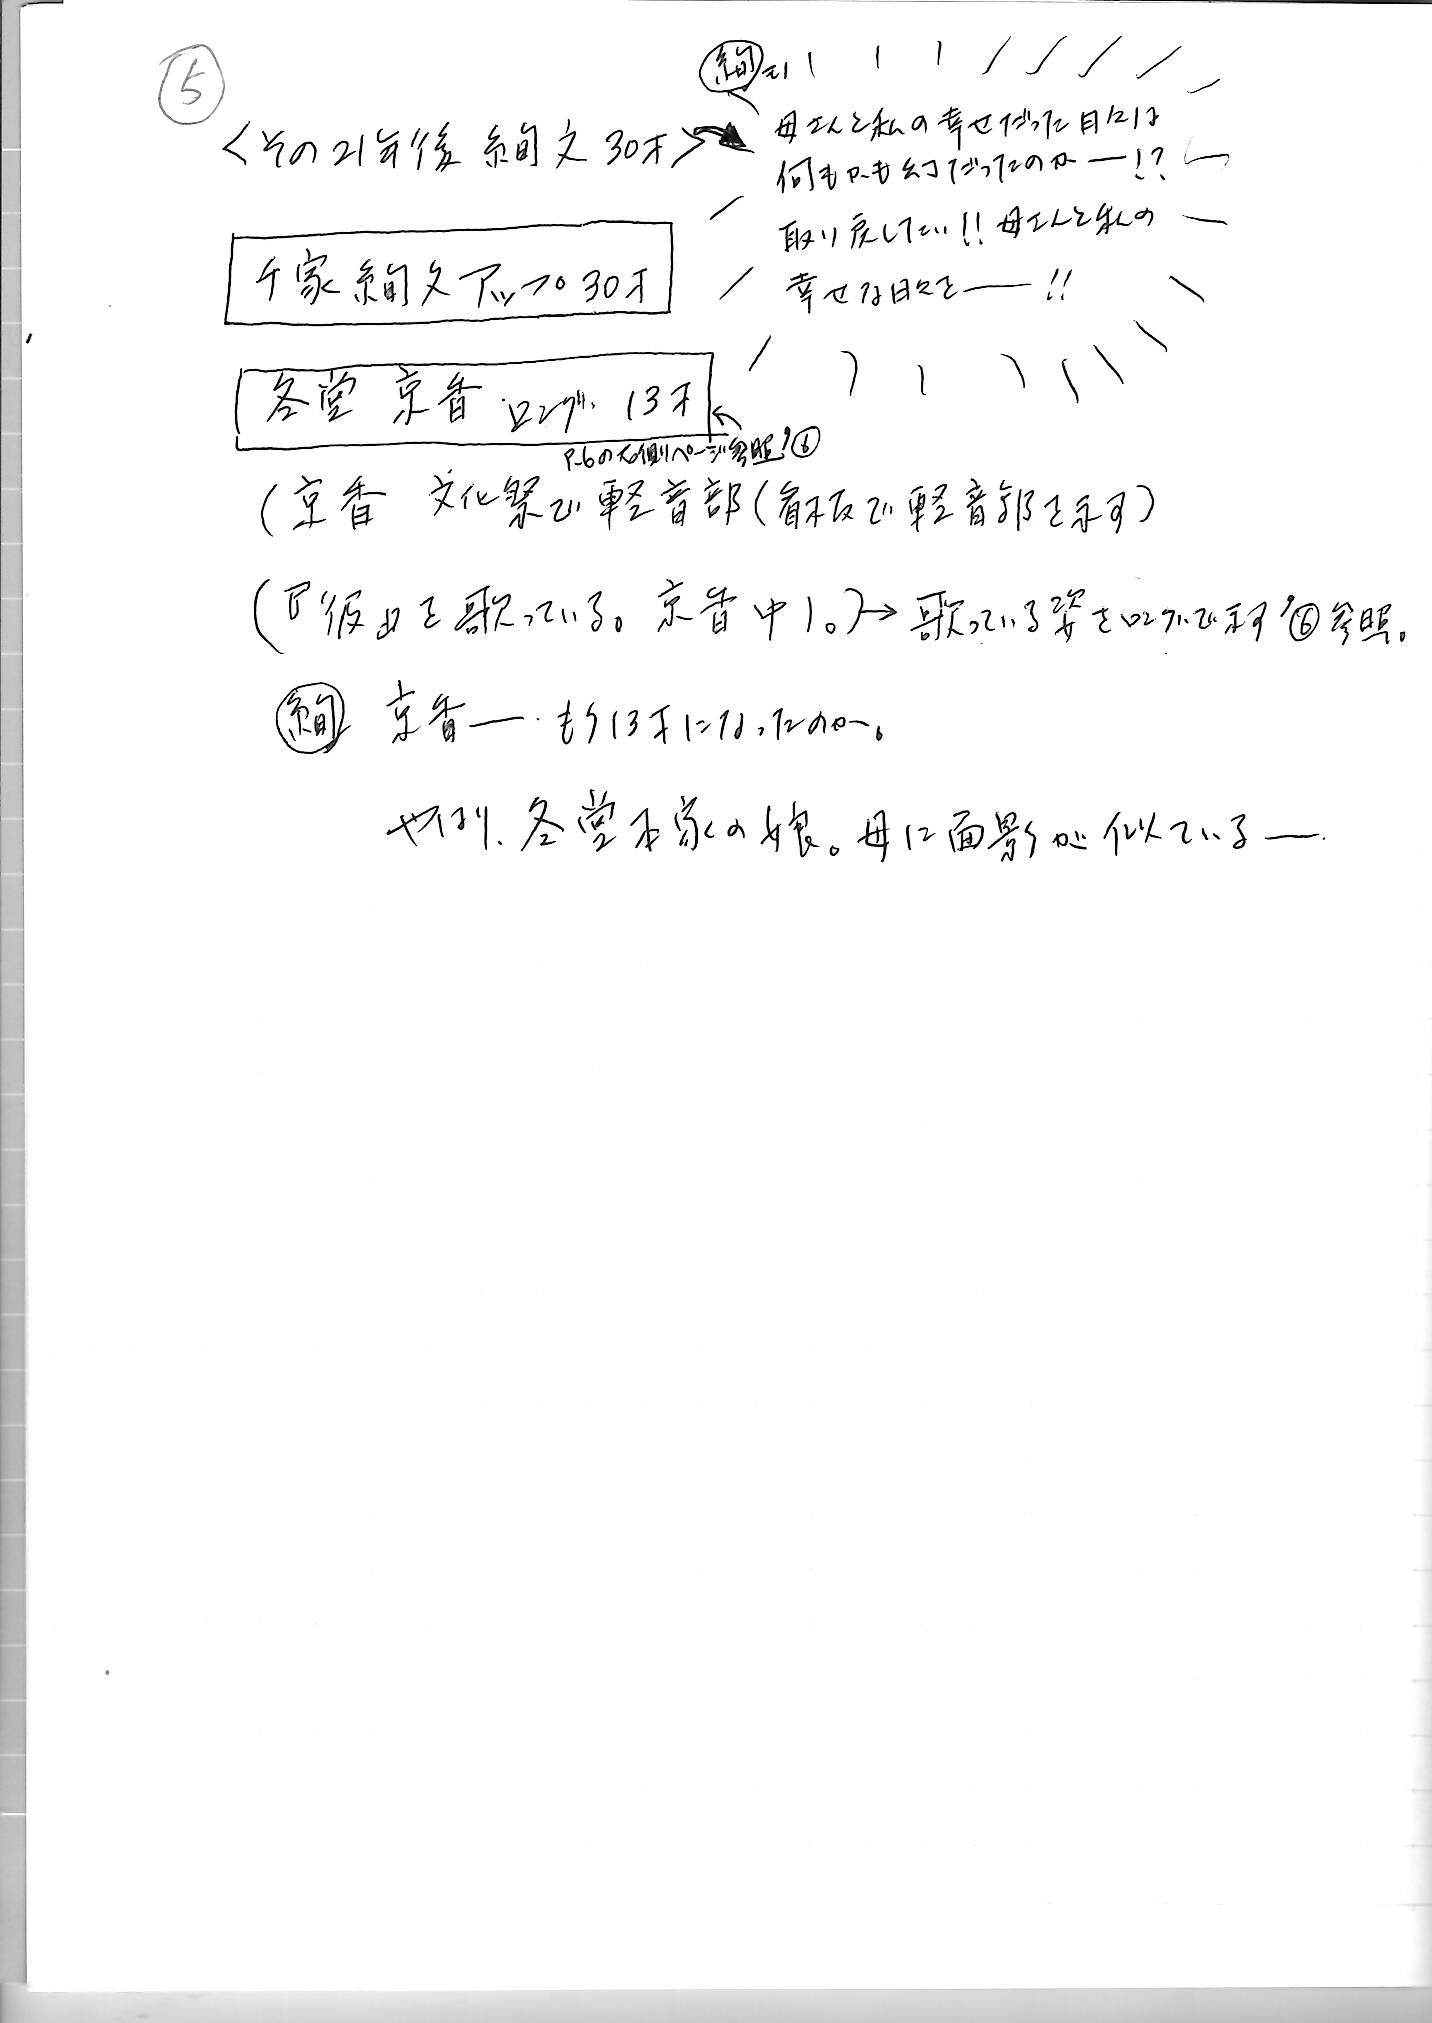 ⑤
<その21年後 絢文 30才>
絢
母さんと私の幸せだった日々は
何もかも幻だったのかー!?
取り戻したい!!母さんと私の
幸せな日々をー!!
千家 絢文 アップ 30才
各堂 京香 ロング 13才
P.6の右側ページ参照 ⑥
(京香 文化祭で軽音部(看板で軽音部を示す)
(『彼』を歌っている。京香中1。)→歌っている姿をロングで示す ⑥参照。
絢 京香ー もう13才になったのかー。
やはり、各堂本家の娘。母に面影が似ているー